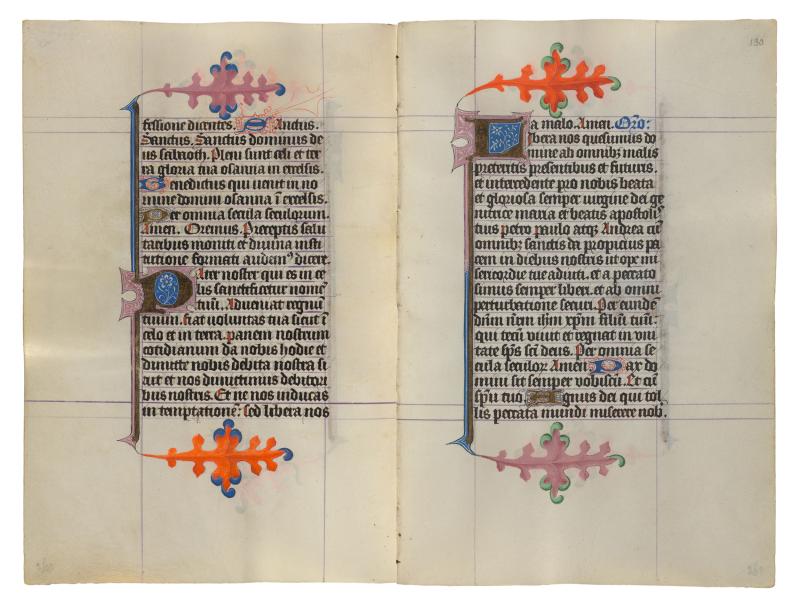 fessione dicentes. Sanctus.
Sanctus. Sanctus dominus de
us sabaoth. Pleni sunt celi et ter
ra gloria tua osanna in excelsis.
Benedictus qui uenit in no
mine domini osanna ī excelsis.
Per omnia secula seculorum.
Amen. Oremus. Preceptis salu
taribus moniti et diuina insti
tutione formati audemꝰ dicere.
Pater noster qui es in ce
lis sanctificetur nomē
tuū. Adueniat regnū
tuum. fiat uoluntas tua sicut ī
celo et in terra. panem nostrum
cotidianum da nobis hodie et
dimitte nobis debita nostra si
cut et nos dimittimus debitori
bus nostris. Et ne nos inducas
in temptationē: Sed libera nos
130
a malo. Amen. Oro:
Libera nos quesumus do
mine ab omnibꝫ malis
preteritis presentibus et futuris.
et intercedente pro nobis beata
et gloriosa semper uirgine dei ge
nitrice maria et beatis apostolis
tuis petro paulo atqꝫ Andrea cū
omnibꝫ sanctis da propicius pa
cem in diebus nostris ut ope mi
sericordie tue adiuti. et a peccato
simus semper liberi. et ab omni
perturbatione securi. Per eundē
dn̄m nr̄m ihm̄ xp̄m filiū tuū:
qui tecū uiuit et regnat in uni
tate sp̄s sc̄i deus. Per omnia se
cula seculor Amen Pax do
mini sit semper vobiscū. Et cū
sp̄u tuo Agnus dei qui tol
lis peccata mundi miserere nob.